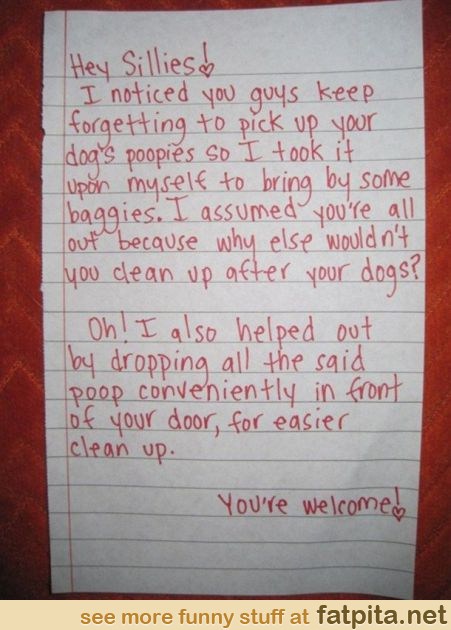 Hey Sillies!
I noticed you guys keep
forgetting to pick up your
dog's poopies so I took it
upon myself to bring by some
baggies. I assumed you're all
out because why else wouldn't
you clean up after your dogs?
Oh! I also helped out
by dropping all the said
poop conveniently in front
of your door, for easier
clean up.
You're welcome!
see more funny stuff at fatpita.net